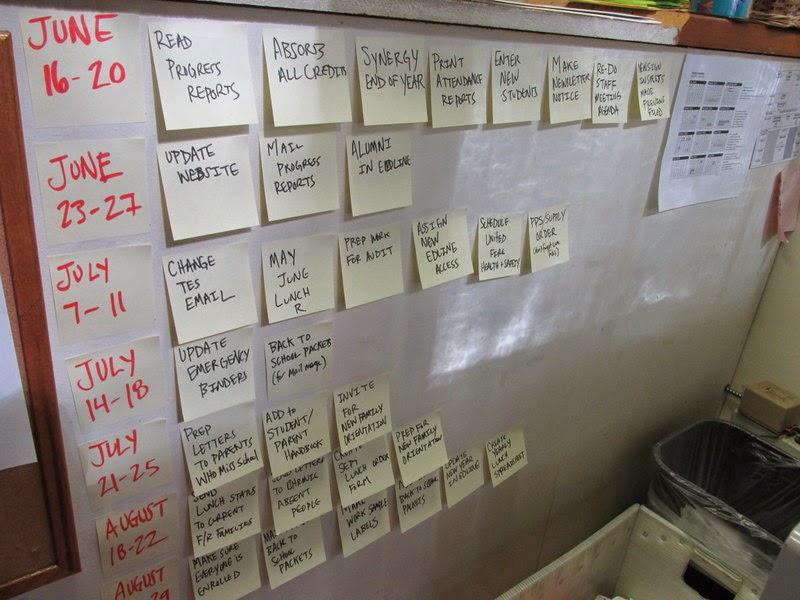 JUNE
16-20
READ
PROGRESS
REPORTS
ABSORB
ALL CREDITS
SYNERGY
END OF YEAR
PRINT
ATTENDANCE
REPORTS
ENTER
NEW
STUDENTS
MAKE
NEWSLETTER
NOTICE
RE-DO
STAFF
MEETING
AGENDA
JUNE
23-27
UPDATE
WEBSITE
MAIL
PROGRESS
REPORTS
ALUMNI
IN EDLINE
JULY
7-11
CHANGE
TES
EMAIL
MAY
JUNE
LUNCH
R
PREP WORK
FOR AUDIT
ASSIGN
NEW
EDLINE
ACCESS
SCHEDULE
UNITED
FOR
HEALTH + SAFETY
PPS/SUPPLY
ORDER
JULY
14-18
UPDATE
EMERGENCY
BINDERS
BACK TO
SCHOOL PACKETS
(for Mail merge)
JULY
21-25
PREP
LETTERS
TO PARENTS
WHO MISS School
ADD to
STUDENT/
PARENT
HANDBOOK
INVITE
FOR
NEW FAMILY
ORIENTATION
PREP FOR
NEW FAMILY
ORIENTATION
UPDATE
NEW YEAR
IN EDLINE
CREATE
YEARLY
LUNCH
SPREADSHEET
AUGUST
18-22
SEND
LUNCH STATUS
TO CURRENT
F/R FAMILIES
SEND LETTERS
TO CHRONIC
ABSENT
PEOPLE
SET
LUNCH ORDER
FORM
BACK TO SCHOOL
PACKETS
AUGUST
MAKE SURE
EVERYONE IS
ENROLLED
BACK TO
SCHOOL
PACKETS
MAKE
WORK SAMPLE
LABELS